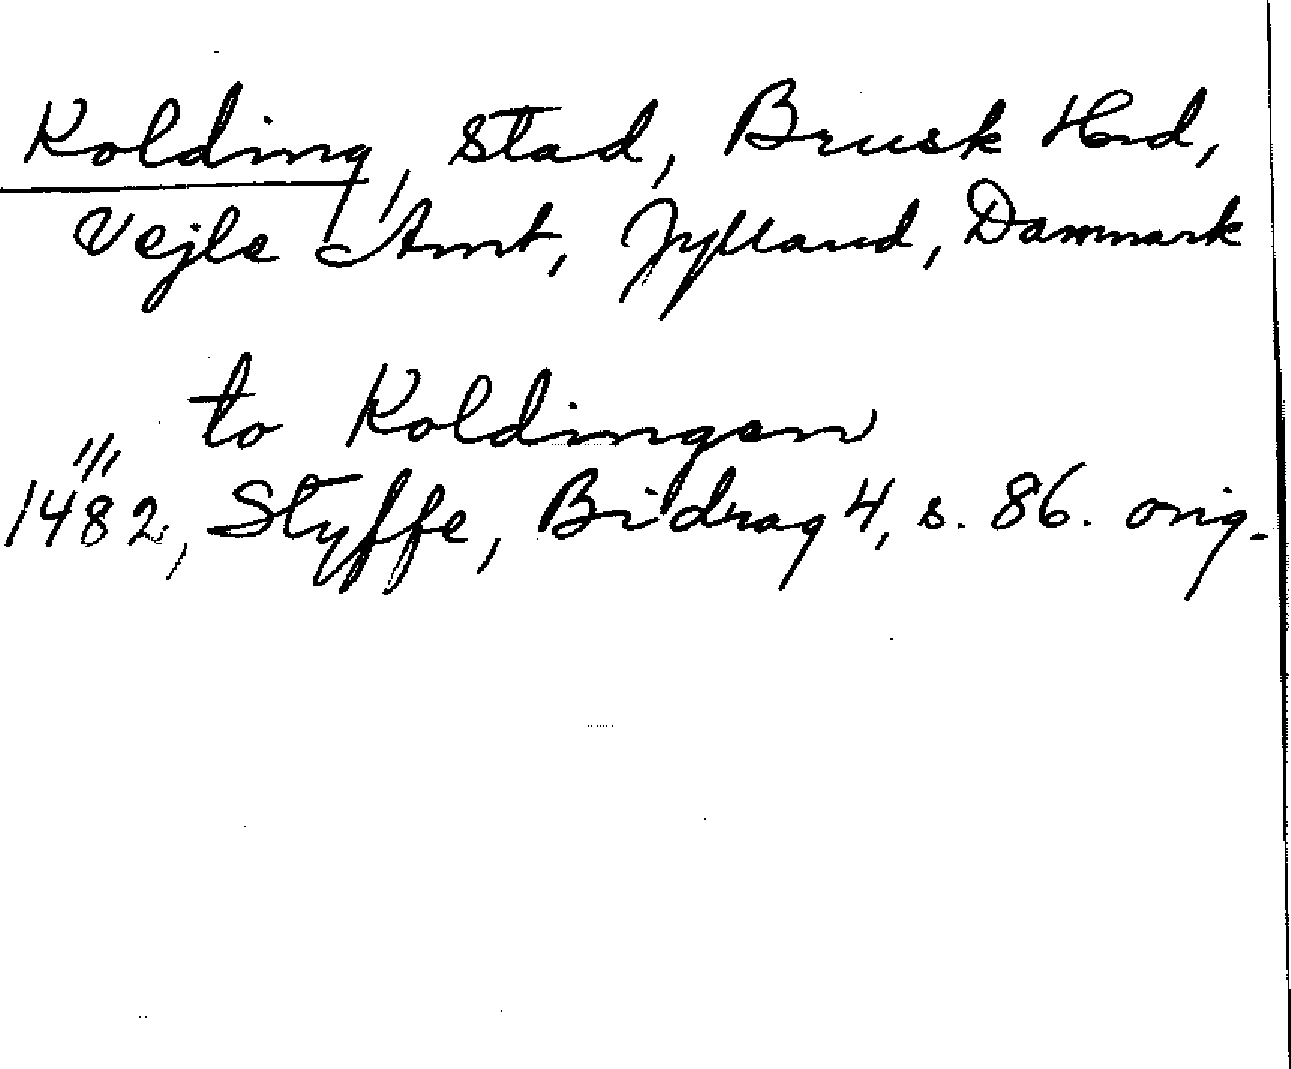 Kolding, stad, Brusk Hrd,
Vejle Amt, Jylland, Danmark
to Koldingen
1482, 11/1, Styffe, Bidrag 4, s. 86. orig.